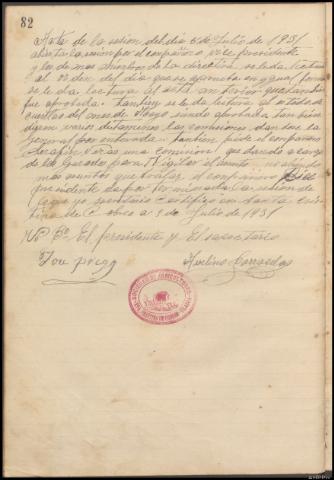 82
Acta de la sesion del dia 8 de Julio de 1931
abierta la sesion por el compañero Vice presidente
y los demas miembros de la directiva se le da lectura
al orden del dia que se aprueba en igual forma
se le da lectura al acta anterior que tambien
fue aprobada. Tambien se le da lectura al estado de
cuentas del mes de Mayo siendo aprobada tambien
dieron varios dictamenes las comisiones dandose la
general por enterada. Tambien pide el compañero
una comision que
de los Guardas para Vigilar el no habiendo
mas asuntos que tratar el compañero Vice
presidente da por terminada la sesion de
que yo secretario certifico en Santa
a 9 de Julio de 1931
Vº Bº El presidente y El secretario
Jose Avelino
SOCIEDAD DE AGRICULTORES